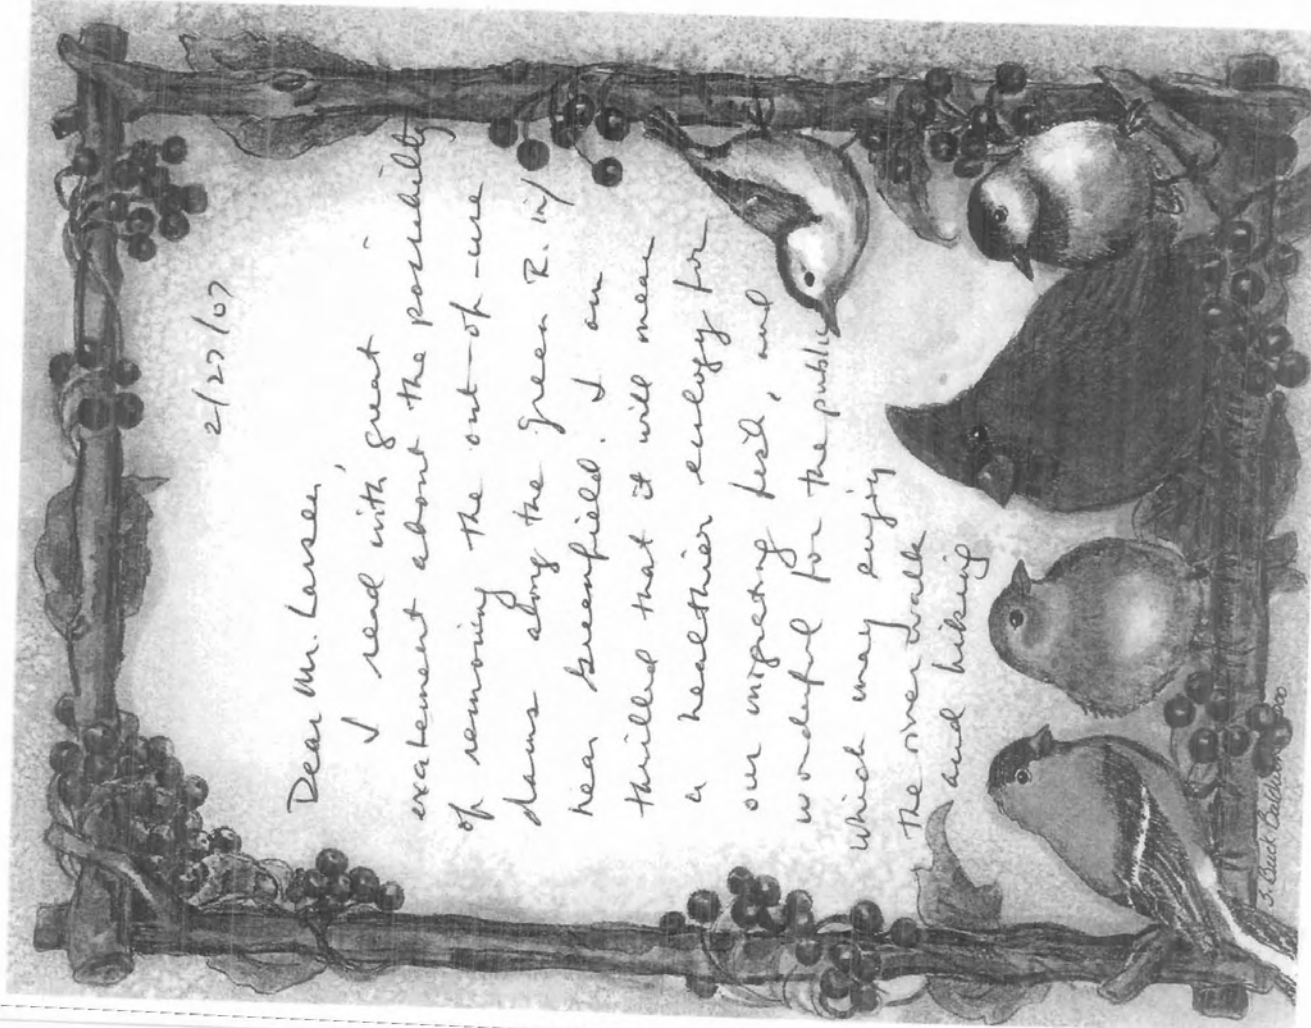 2/27/07
Dear Mr. Lansee,
I read with great
excitement about the possibility
of removing the out-of-use
dams along the Green R. in/
near Greenfield. I am
thrilled that it will mean
a healthier ecology for
our migrating fish, and
wonderful for the public
which may enjoy
the river walk
and hiking
S. Buck Baldwin